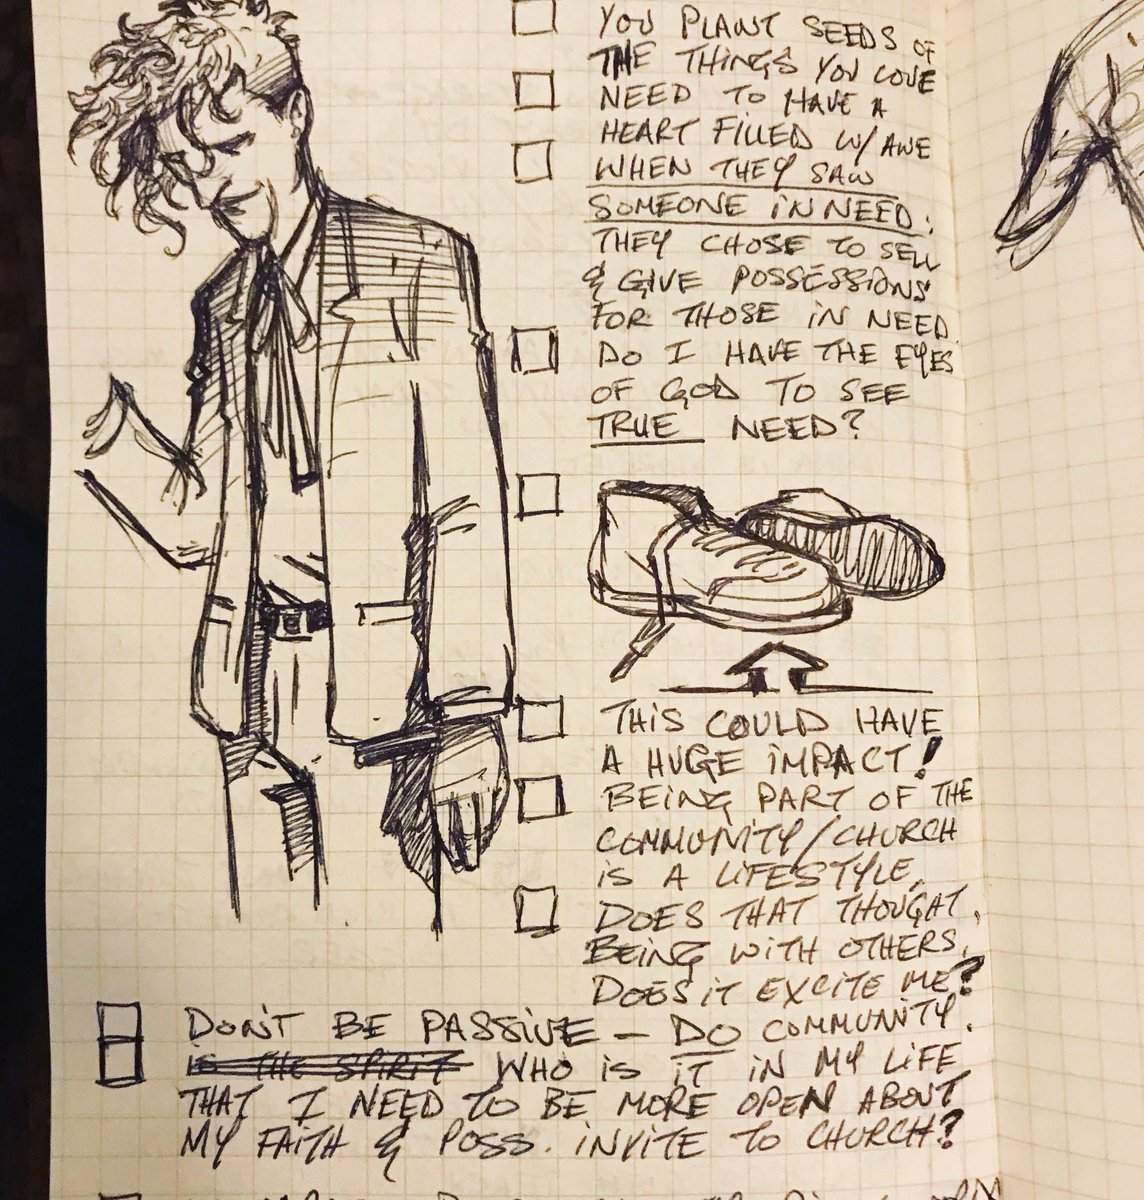 YOU PLANT SEEDS OF
THE THINGS YOU LOVE
NEED TO HAVE A
HEART FILLED W/ AWE
WHEN THEY SAW
SOMEONE IN NEED.
THEY CHOSE TO SELL
& GIVE POSSESSIONS
FOR THOSE IN NEED
DO I HAVE THE EYES
OF GOD TO SEE
TRUE NEED?
THIS COULD HAVE
A HUGE IMPACT!
BEING PART OF THE
COMMUNITY/CHURCH
IS A LIFESTYLE,
DOES THAT THOUGHT,
BEING WITH OTHERS,
DOES IT EXCITE ME?
DON'T BE PASSIVE — DO COMMUNITY.
IS THE SPIRIT WHO IS IT IN MY LIFE
THAT I NEED TO BE MORE OPEN ABOUT
MY FAITH & POSS. INVITE TO CHURCH?